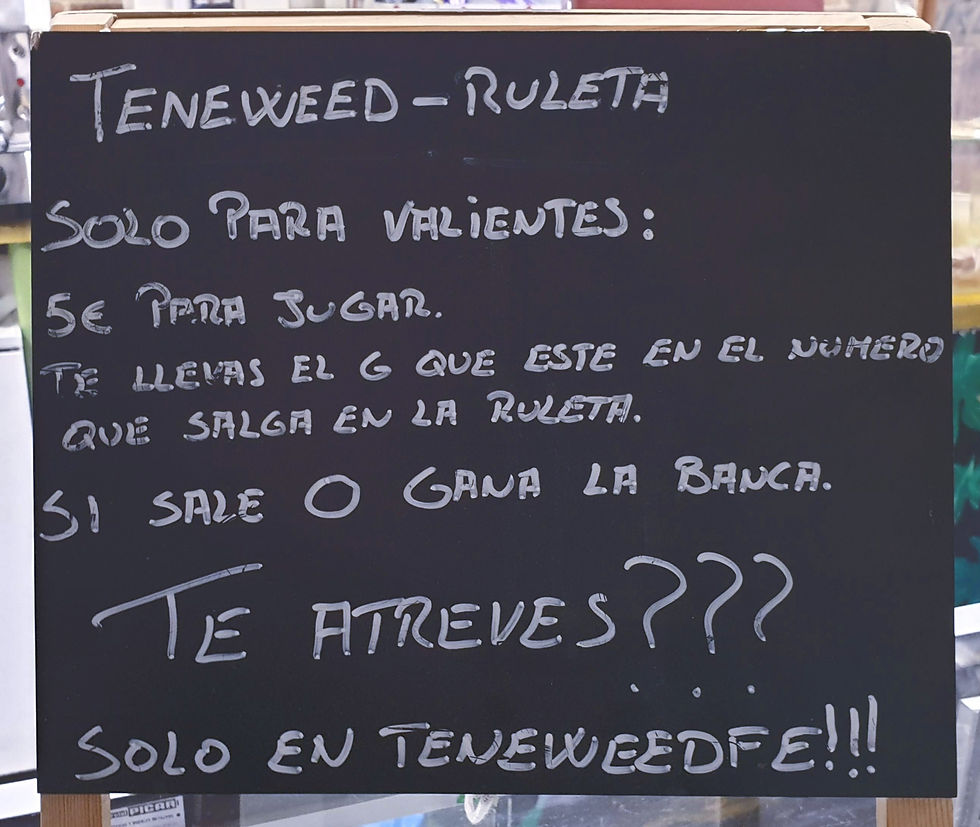 TENEWEED - RULETA
SOLO PARA VALIENTES:
5€ PARA JUGAR.
TE LLEVAS EL G QUE ESTE EN EL NUMERO
QUE SALGA EN LA RULETA.
SI SALE O GANA LA BANCA.
TE ATREVES???
SOLO EN TENEWEEDFE!!!
PICAR